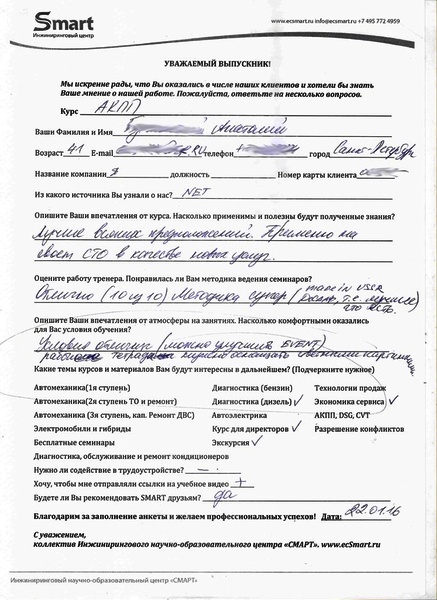 Smart
Инжиниринговый центр
www.ecsmart.ru info@ecsmart.ru +7 495 772 4959
УВАЖАЕМЫЙ ВЫПУСКНИК!
Мы искренне рады, что Вы оказались в числе наших клиентов и хотели бы знать
Ваше мнение о нашей работе. Пожалуйста, ответьте на несколько вопросов.
Курс АКПП
Ваши Фамилия и Имя Анатолий
Возраст 41 E-mail .RU телефон + город Санкт-Петербург
Название компании должность Номер карты клиента
Из какого источника Вы узнали о нас? NET
Опишите Ваши впечатления от курса. Насколько применимы и полезны будут полученные знания?
Лучше всяких предположений. Применю на
своем СТО в качестве новых услуг.
Оцените работу тренера. Понравилась ли Вам методика ведения семинаров?
Отлично (10 из 10) Методика супер (made in USSR
т.е. лучшее что есть.
Опишите Ваши впечатления от атмосферы на занятиях. Насколько комфортными оказались
для Вас условия обучения?
Условия отличны (можно улучшить EVENT)
тетради картинками
Какие темы курсов и материалов Вам будут интересны в дальнейшем? (Подчеркните нужное)
Автомеханика(1я ступень) Диагностика (бензин) Технологии продаж
Автомеханика(2я ступень ТО и ремонт) Диагностика (дизель) ✓ Экономика сервиса ✓
Автомеханика (3я ступень, кап. Ремонт ДВС) Автоэлектрика АКПП, DSG, CVT
Электромобили и гибриды Курс для директоров ✓ Разрешение конфликтов
Бесплатные семинары Экскурсия ✓
Диагностика, обслуживание и ремонт кондиционеров
Нужно ли содействие в трудоустройстве? —
Хочу, чтобы мне отправляли ссылки на учебное видео +
Будете ли Вы рекомендовать SMART друзьям? да
Благодарим за заполнение анкеты и желаем профессиональных успехов! Дата: 22.01.16
С уважением,
коллектив Инжинирингового научно-образовательного центра «СМАРТ». www.ecSmart.ru
Инжиниринговый научно-образовательный центр «СМАРТ»